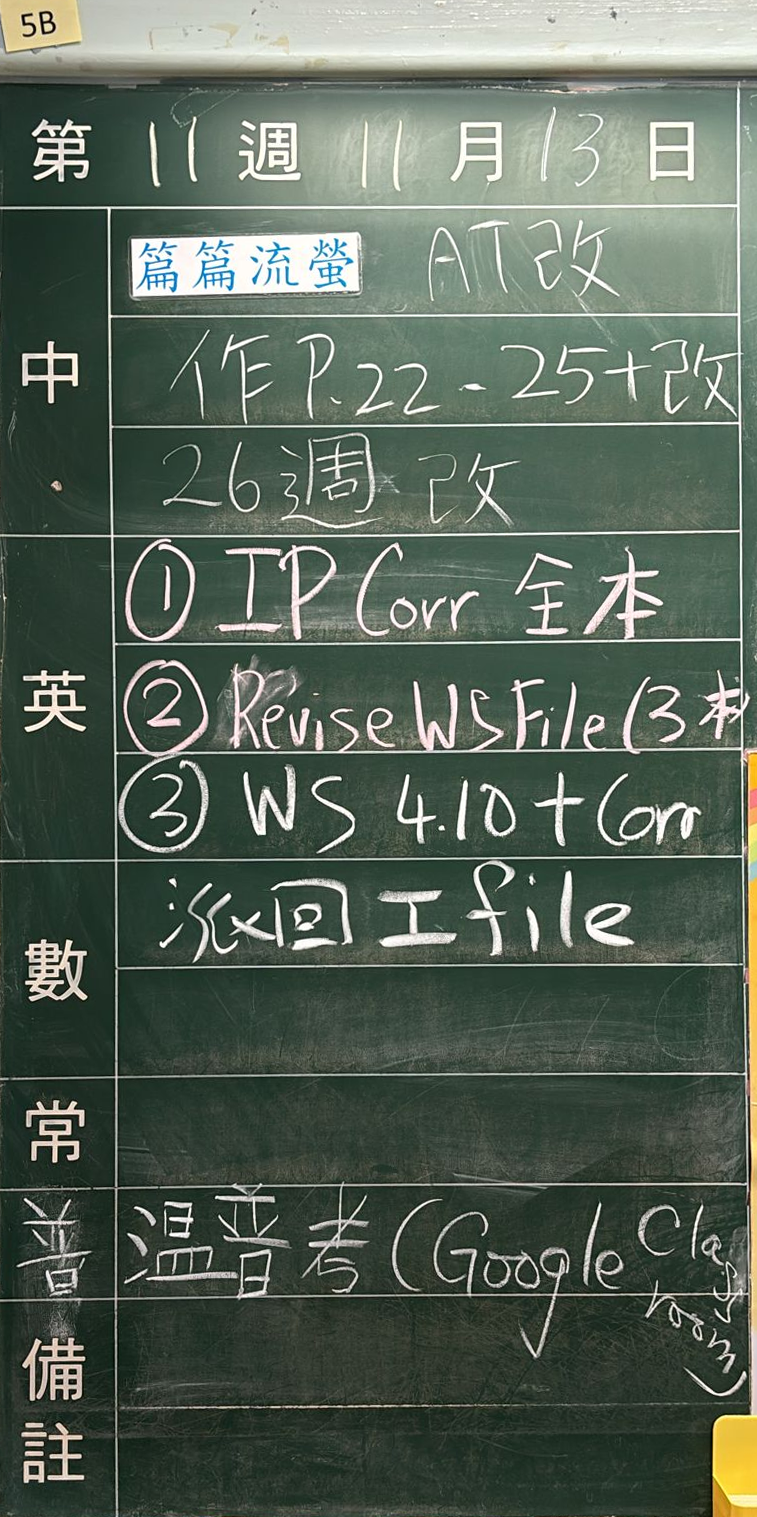 5B
第 11 週 11 月 13 日
中
篇篇流螢 AT改
作 P.22 - 25+改
26週 改
英
① IP Corr 全本
② Revise WS File (3本
③ WS 4.10 + Corr
數
派回工file
常
普 温普考 (Google Classroom)
備註